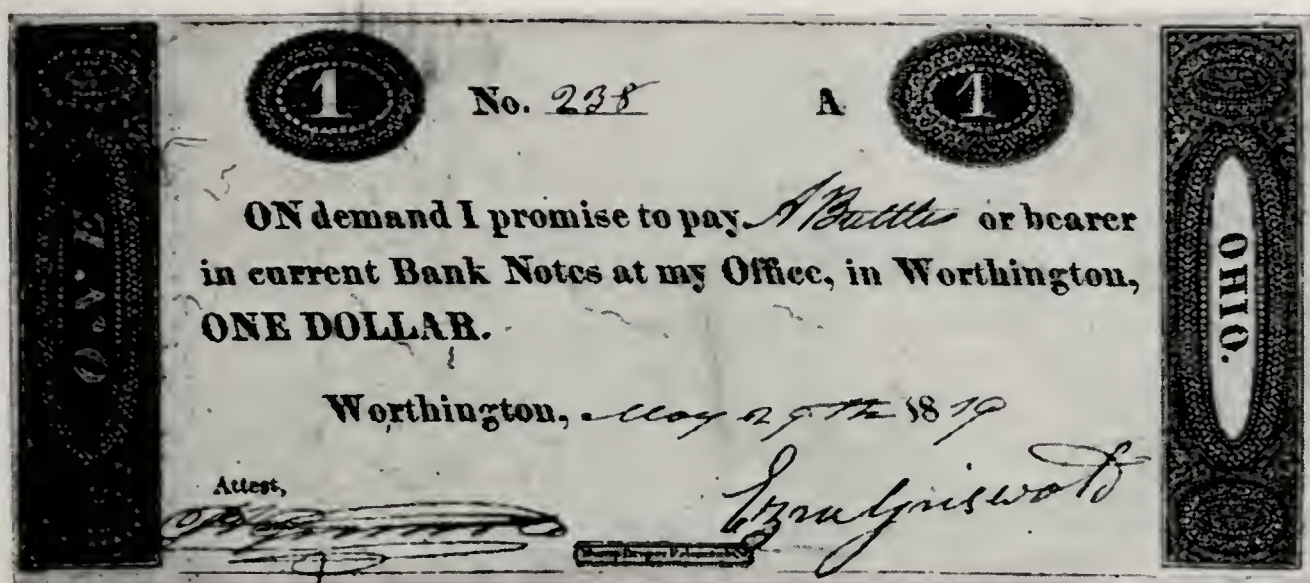 1 No. 238 A 1
ONE
ON demand I promise to pay A Buttles or bearer
in current Bank Notes at my Office, in Worthington,
ONE DOLLAR.
OHIO.
Worthington, May 29th 1819
Attest,
Ezra Griswold